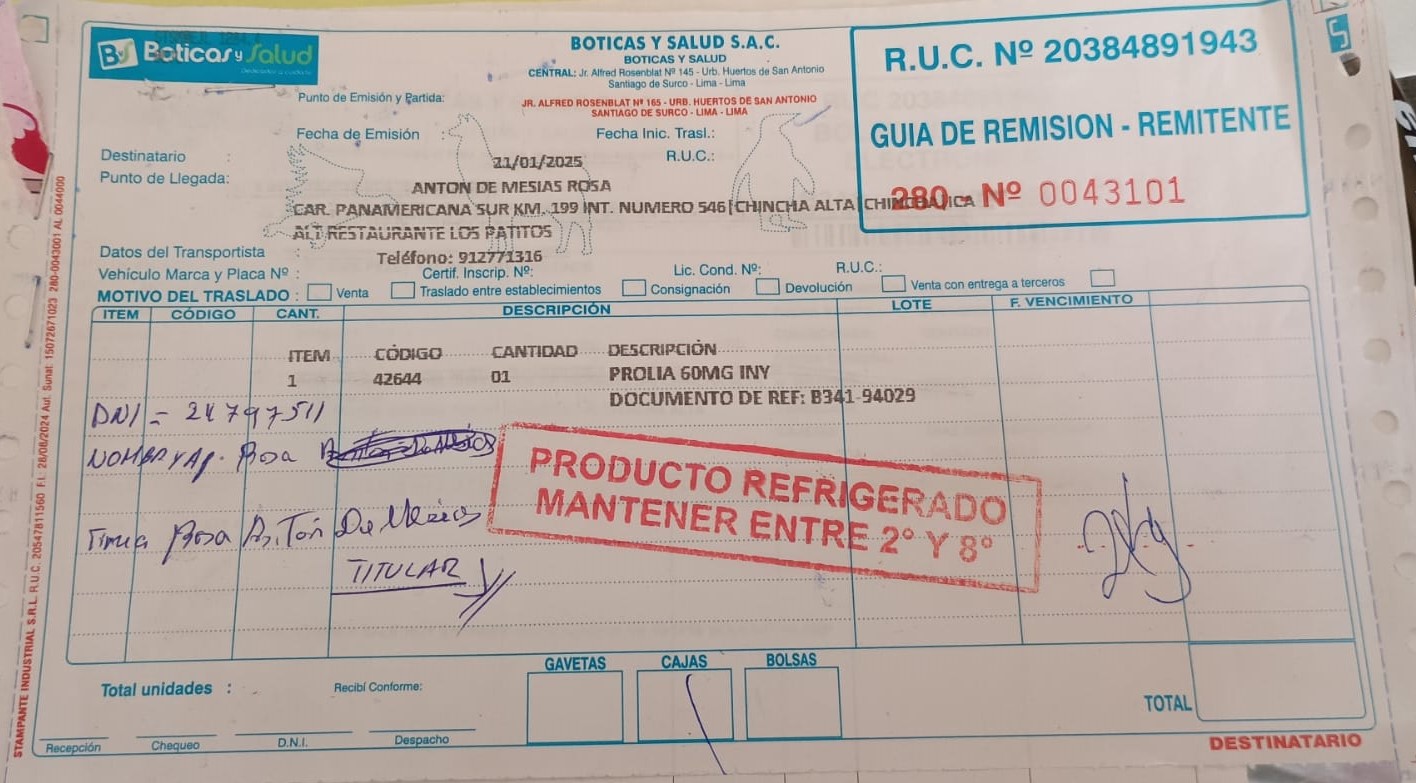 Boticas y Salud
BOTICAS Y SALUD S.A.C.
BOTICAS Y SALUD
CENTRAL: Jr. Alfred Rosenblat Nº 145 - Urb. Huertos de San Antonio
Santiago de Surco - Lima - Lima
R.U.C. Nº 20384891943
GUIA DE REMISION - REMITENTE
280 Nº 0043101
Punto de Emisión y Partida:
JR. ALFRED ROSENBLAT Nº 165 - URB. HUERTOS DE SAN ANTONIO
SANTIAGO DE SURCO - LIMA - LIMA
Fecha de Emisión :
Fecha Inic. Trasl.:
21/01/2025
Destinatario :
R.U.C.:
Punto de Llegada:
ANTON DE MESIAS ROSA
CAR. PANAMERICANA SUR KM. 199 INT. NUMERO 546|CHINCHA ALTA|CHINCHA|ICA
ALT RESTAURANTE LOS PATITOS
Datos del Transportista :
Teléfono: 912771316
Vehículo Marca y Placa Nº :
Certif. Inscrip. Nº:
Lic. Cond. Nº:
R.U.C.:
MOTIVO DEL TRASLADO : Venta Traslado entre establecimientos Consignación Devolución Venta con entrega a terceros
ITEM CÓDIGO CANT. DESCRIPCIÓN LOTE F. VENCIMIENTO
ITEM CÓDIGO CANTIDAD DESCRIPCIÓN
1 42644 01 PROLIA 60MG INY
DOCUMENTO DE REF: B341-94029
DNI =
Rosa
PRODUCTO REFRIGERADO
MANTENER ENTRE 2° Y 8°
Firma Rosa Anton De Mesias
TITULAR
GAVETAS CAJAS BOLSAS
Total unidades :
Recibí Conforme:
TOTAL
Recepción Chequeo D.N.I. Despacho
DESTINATARIO
STAMPANTE INDUSTRIAL S.R.L. R.U.C. 20547811560 F.I. 28/08/2024 Aut. Sunat: 15072671023 280-0043001 AL 0044000